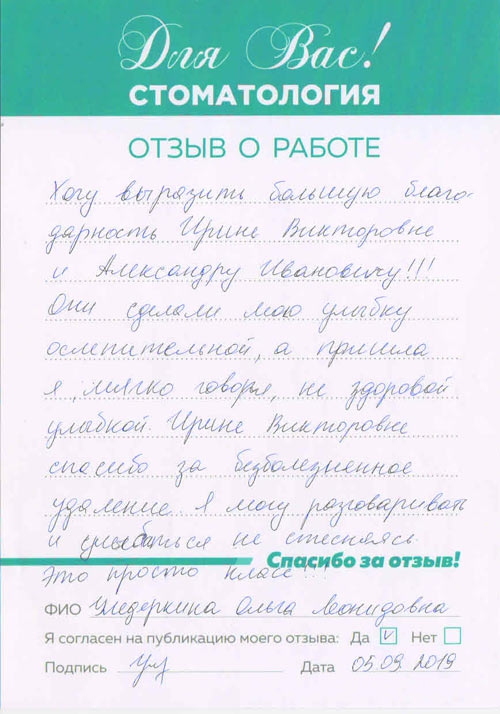 Для Вас!
СТОМАТОЛОГИЯ
ОТЗЫВ О РАБОТЕ
Хочу выразить большую благо-
дарность Ирине Викторовне
и Александру Ивановичу!!!
Они сделали мою улыбку
ослепительной, а пришла
я, мягко говоря, не здоровой
улыбкой. Ирине Викторовне
спасибо за безболезненное
удаление. Я могу разговаривать
и улыбаться не стесняясь.
Спасибо за отзыв!
Это просто класс!!!
ФИО Ольга Леонидовна
Я согласен на публикацию моего отзыва: Да Нет
Подпись Дата 05.09.2019